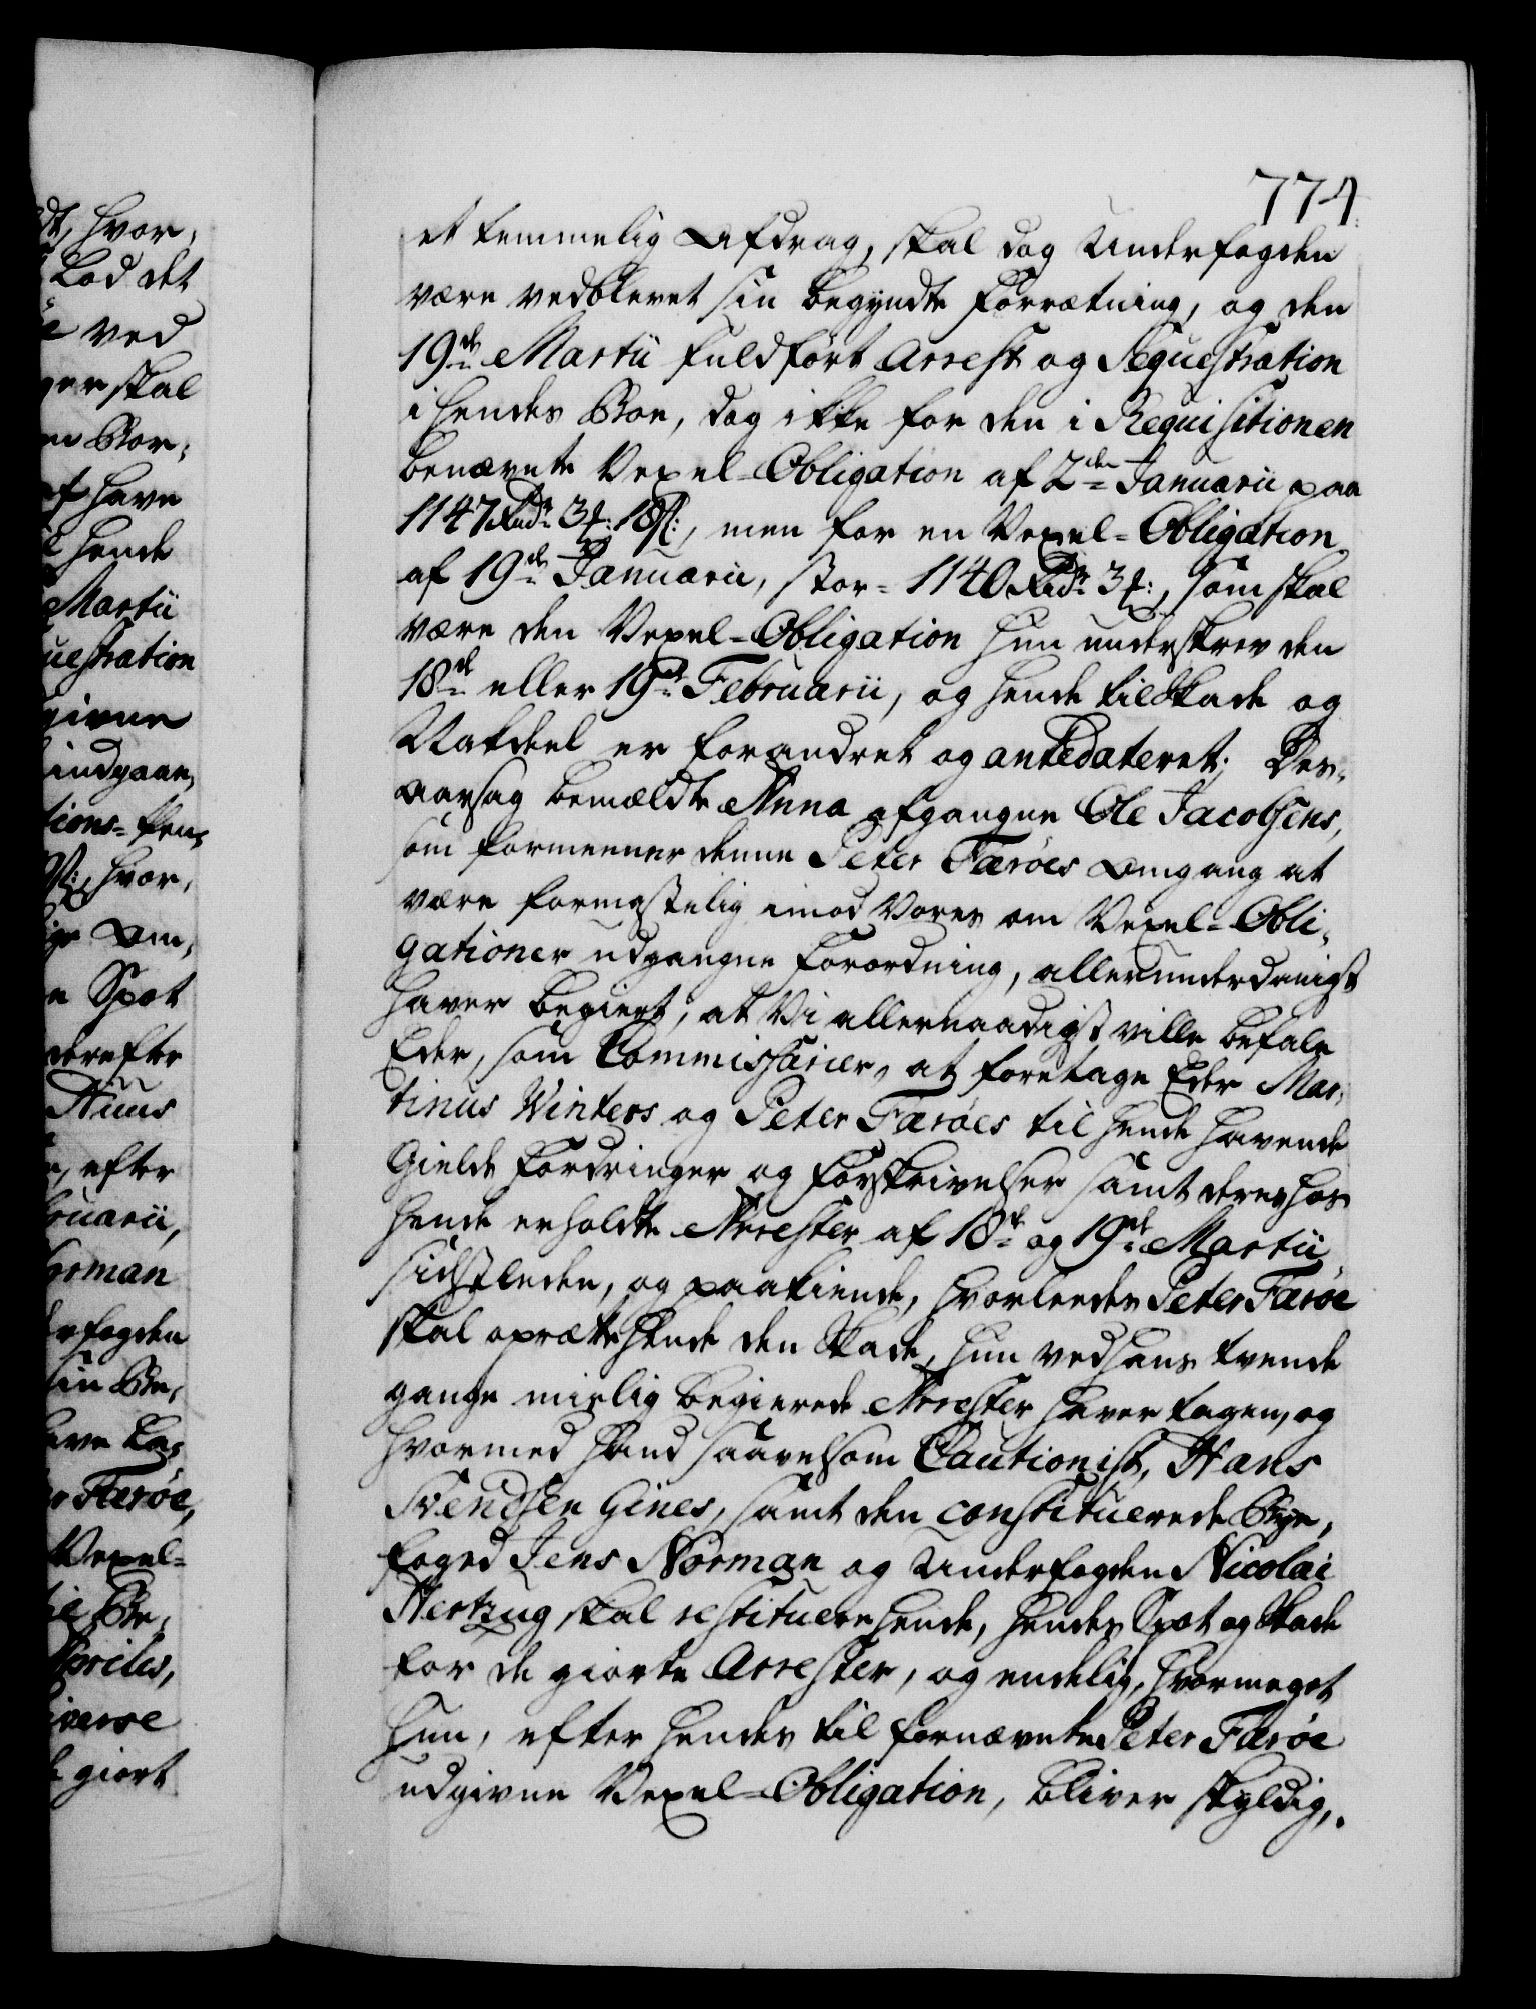 774.
et temmelig Afdrag, skal dog Underfogden
være vedblevet sin begyndte Forrætning, og den
19de Martii fuldført Arrest og Sequestration
i hendes Boe, dog ikke for den i Requisitionen
benævnte Vexel-Obligation af 2den Januarii paa
1147 Rdr 3 ₰: 18 ß:, men for en Vexel-Obligation
af 19de Januarii, stor - 1140 Rdr 3 ₰:, som skal
være den Vexel-Obligation hun underskrev den
18de eller 19de Februarii, og hende til Skade og
Nakdeel er forandret og antedateret; Des-
aarsag bemældte Anna afgangne Ole Jacobsens,
som formeener denne Peter Færöes Omgang at
være formastelig imod Vores om Vexel-Obli-
gationer udgangne Forordning, allerunderdanigst
haver begiert, at Vi allernaadigst ville befale
Eder, som Commissarier, at foretage Eder Mar-
tinus Winters og Peter Færöes til hende havende
Gields Fordringer og Forskrivelser samt deres hos
hende erholdte Arrester af 18de og 19de Martii
sidstleden, og paakiende, hvorleedes Peter Færöe
skal oprætte hende den Skade, hun ved hans tvende
gange mislig begierede Arrester haver tagen, og
hvormed hand saavelsom Cautionist, Hans
Svendsen Gines, samt den constituerede Bye-
foged Jens Norman og Underfogden Nicolai
Hertzug skal restituere hende, hendes Spot og Skade
for de giorte Arrester, og endelig, hvormeget
hun, efter hendes til fornævnte Peter Færöe
udgivne Vexel-Obligation, bliver skyldig,.
dt, hvor-
Lod det
ved
skal
Bor-
have
hende
Martii
uestration
givne
indgaae-
tions-
hvor-
Om-
Spot
derefter
Huus
efter
ruarii,
orman
fogden
sin Be-
Færöe,
Vexel-
Be-
Aprilis,
iverse
giort